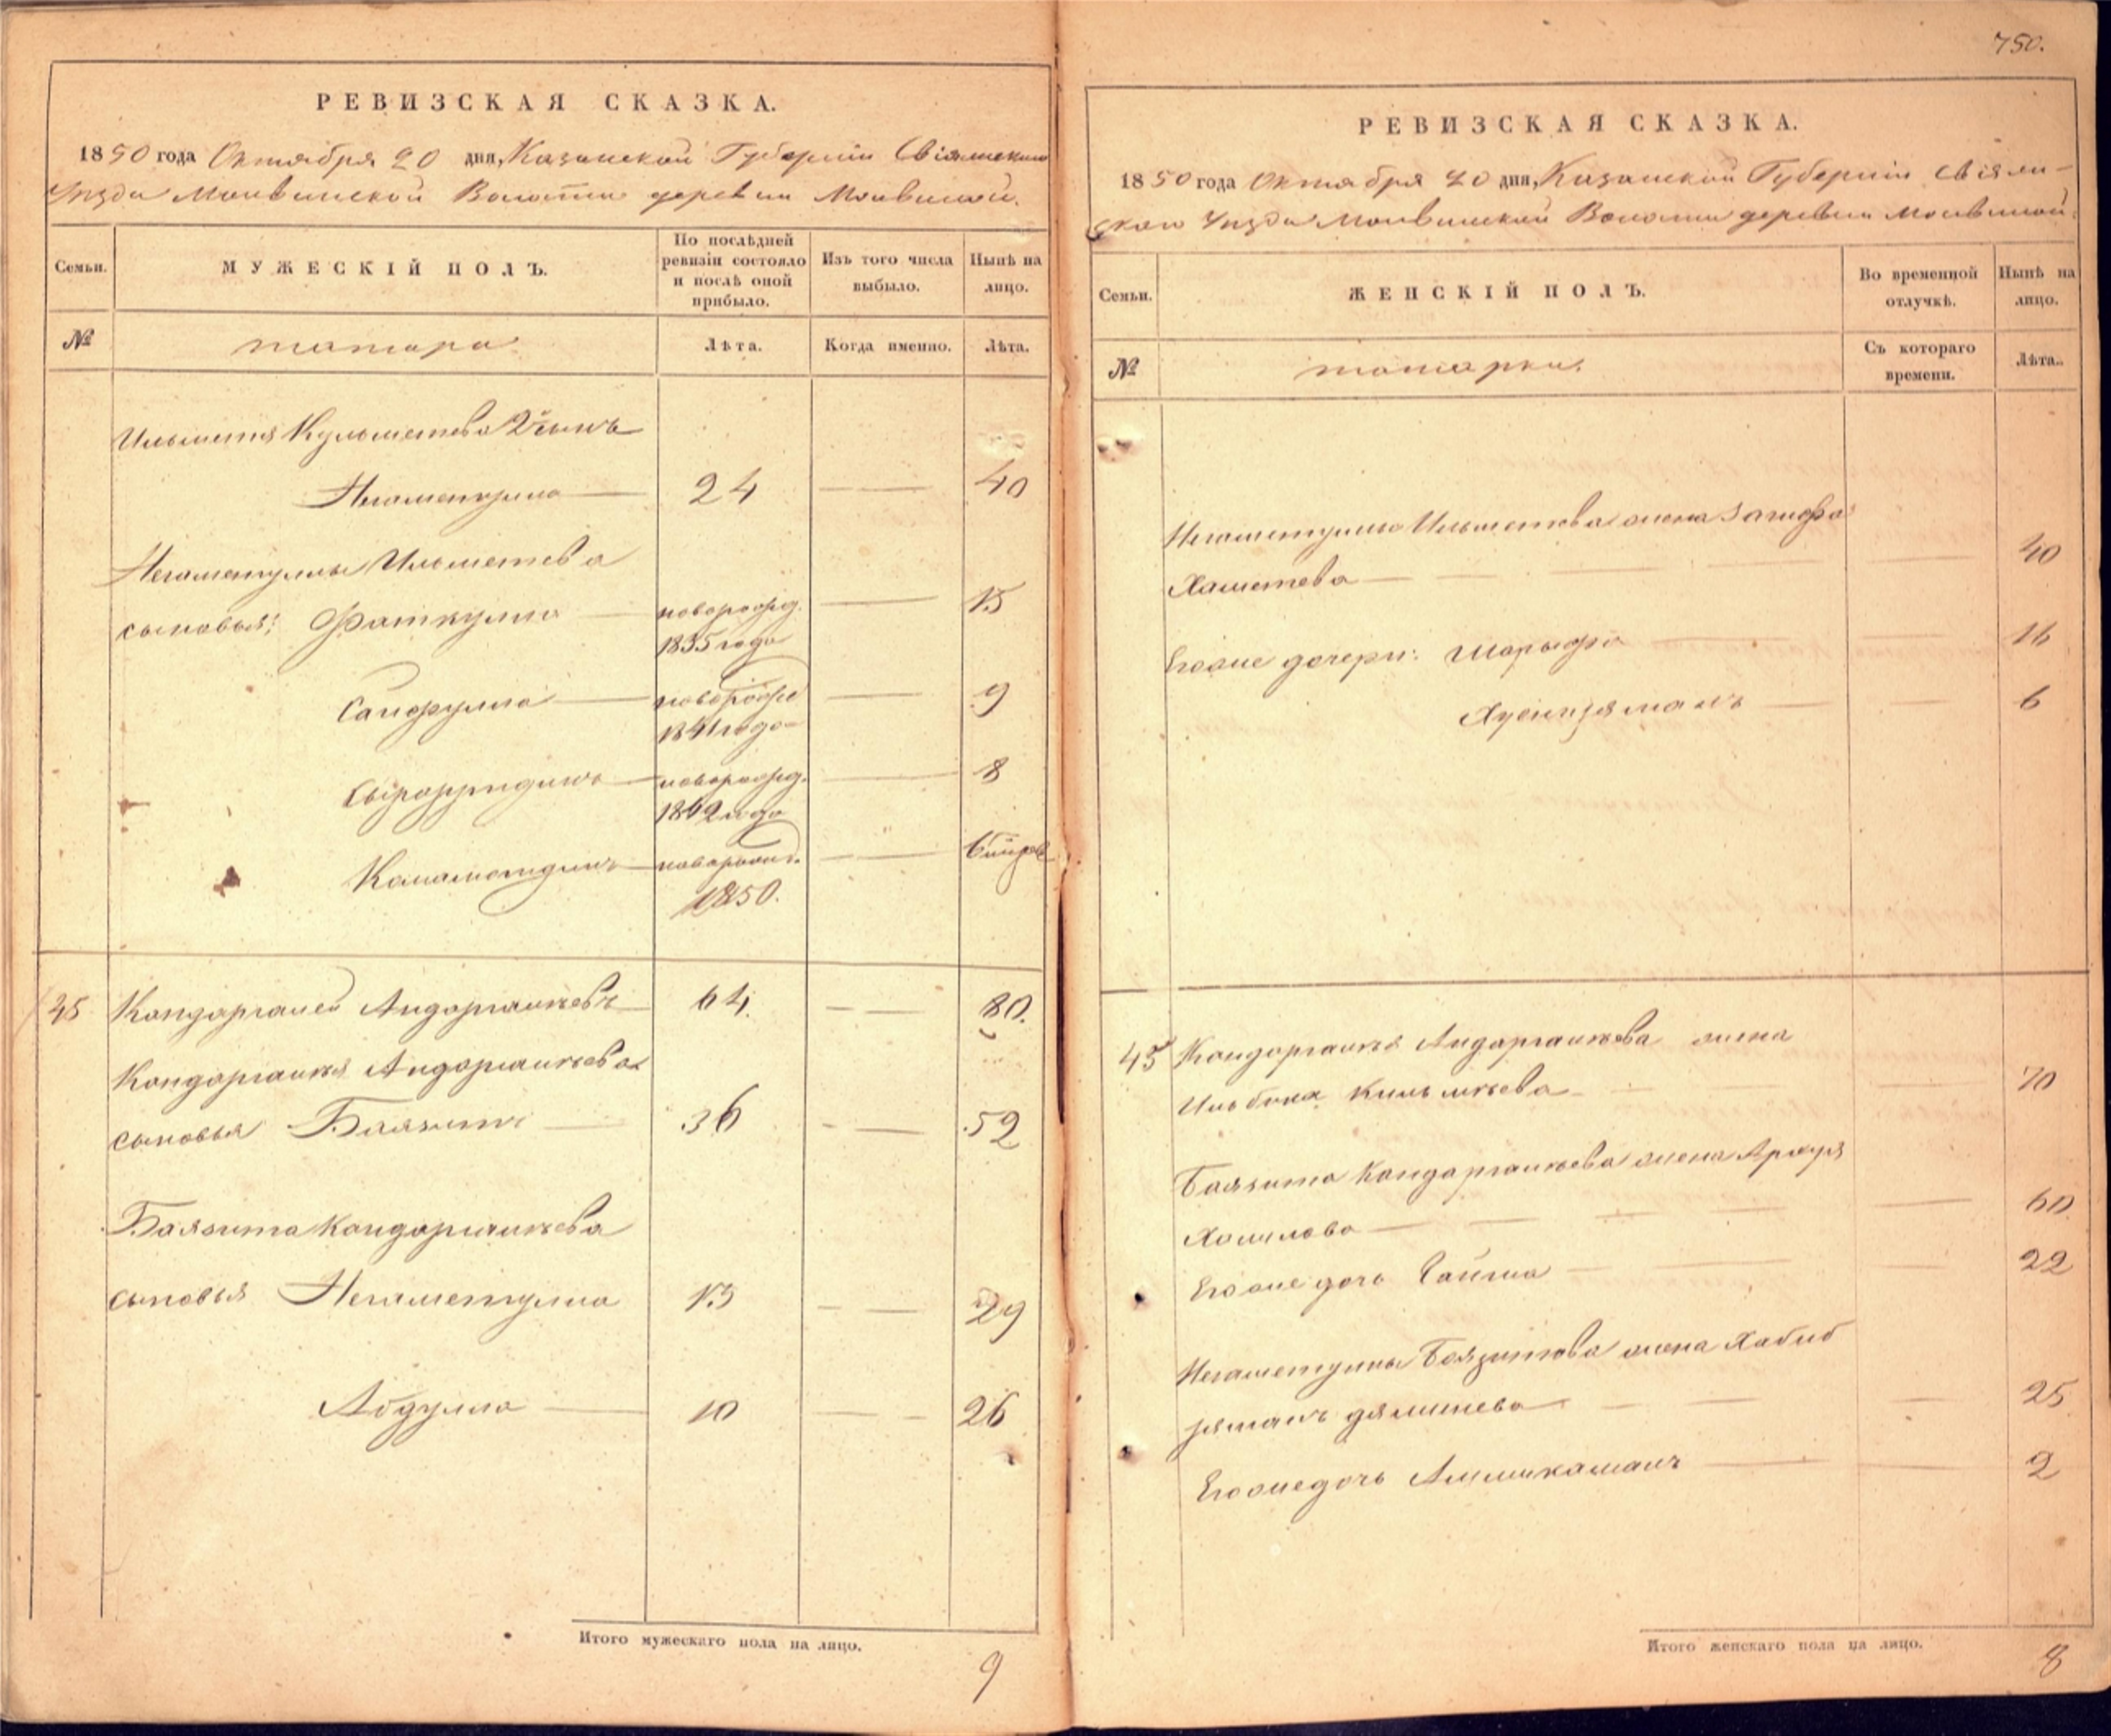 РЕВИЗСКАЯ СКАЗКА.
1850 года Октября 20 дня, Казанской Губерніи Свіяжскаго
Уѣзда Молвинской Волости деревни Молвиной.
Семьи.
МУЖЕСКІЙ ПОЛЪ.
По послѣдней ревизіи состояло и послѣ оной прибыло.
Изъ того числа выбыло.
Нынѣ на лицо.
№
татара
Лѣта.
Когда именно.
Лѣта.
Ильметя Кульметева 2й сынъ
Негаметулла 24 40
Негаметуллы Ильметева
сыновья: Фаткулла новорожд. 1835 года 15
Сайфулла новорожд 1841 года 9
новорожд. 1842 года 8
новорожд. 1850.
45 Кондаргалей Андаргалѣевъ 64 80.
Кондаргалѣя Андаргалѣева
сыновья Баязитъ 36 52
Баязита Кондаргалѣева
сыновья Негаметулла 13 29
Абдулла 10 26
Итого мужескаго пола на лицо.
9
750.
РЕВИЗСКАЯ СКАЗКА.
1850 года Октября 20 дня, Казанской Губерніи Свіяж-
скаго Уѣзда Молвинской Волости деревни Молвиной.
Семьи.
ЖЕНСКІЙ ПОЛЪ.
Во временной отлучкѣ.
Нынѣ на лицо.
№
татарки.
Съ котораго времени.
Лѣта.
Негаметуллы Ильметева жена Загифа
Хаметева 40
Егоже дочери: Шарыфа 16
6
45 Кондаргалѣя Андаргалѣева жена
Ильбика 70
Баязита Кондаргалѣева жена
60
Егоже дочь 22
Негаметуллы Баязитова жена Хабиб
25
Егоже дочь 2
Итого женскаго пола на лицо.
8